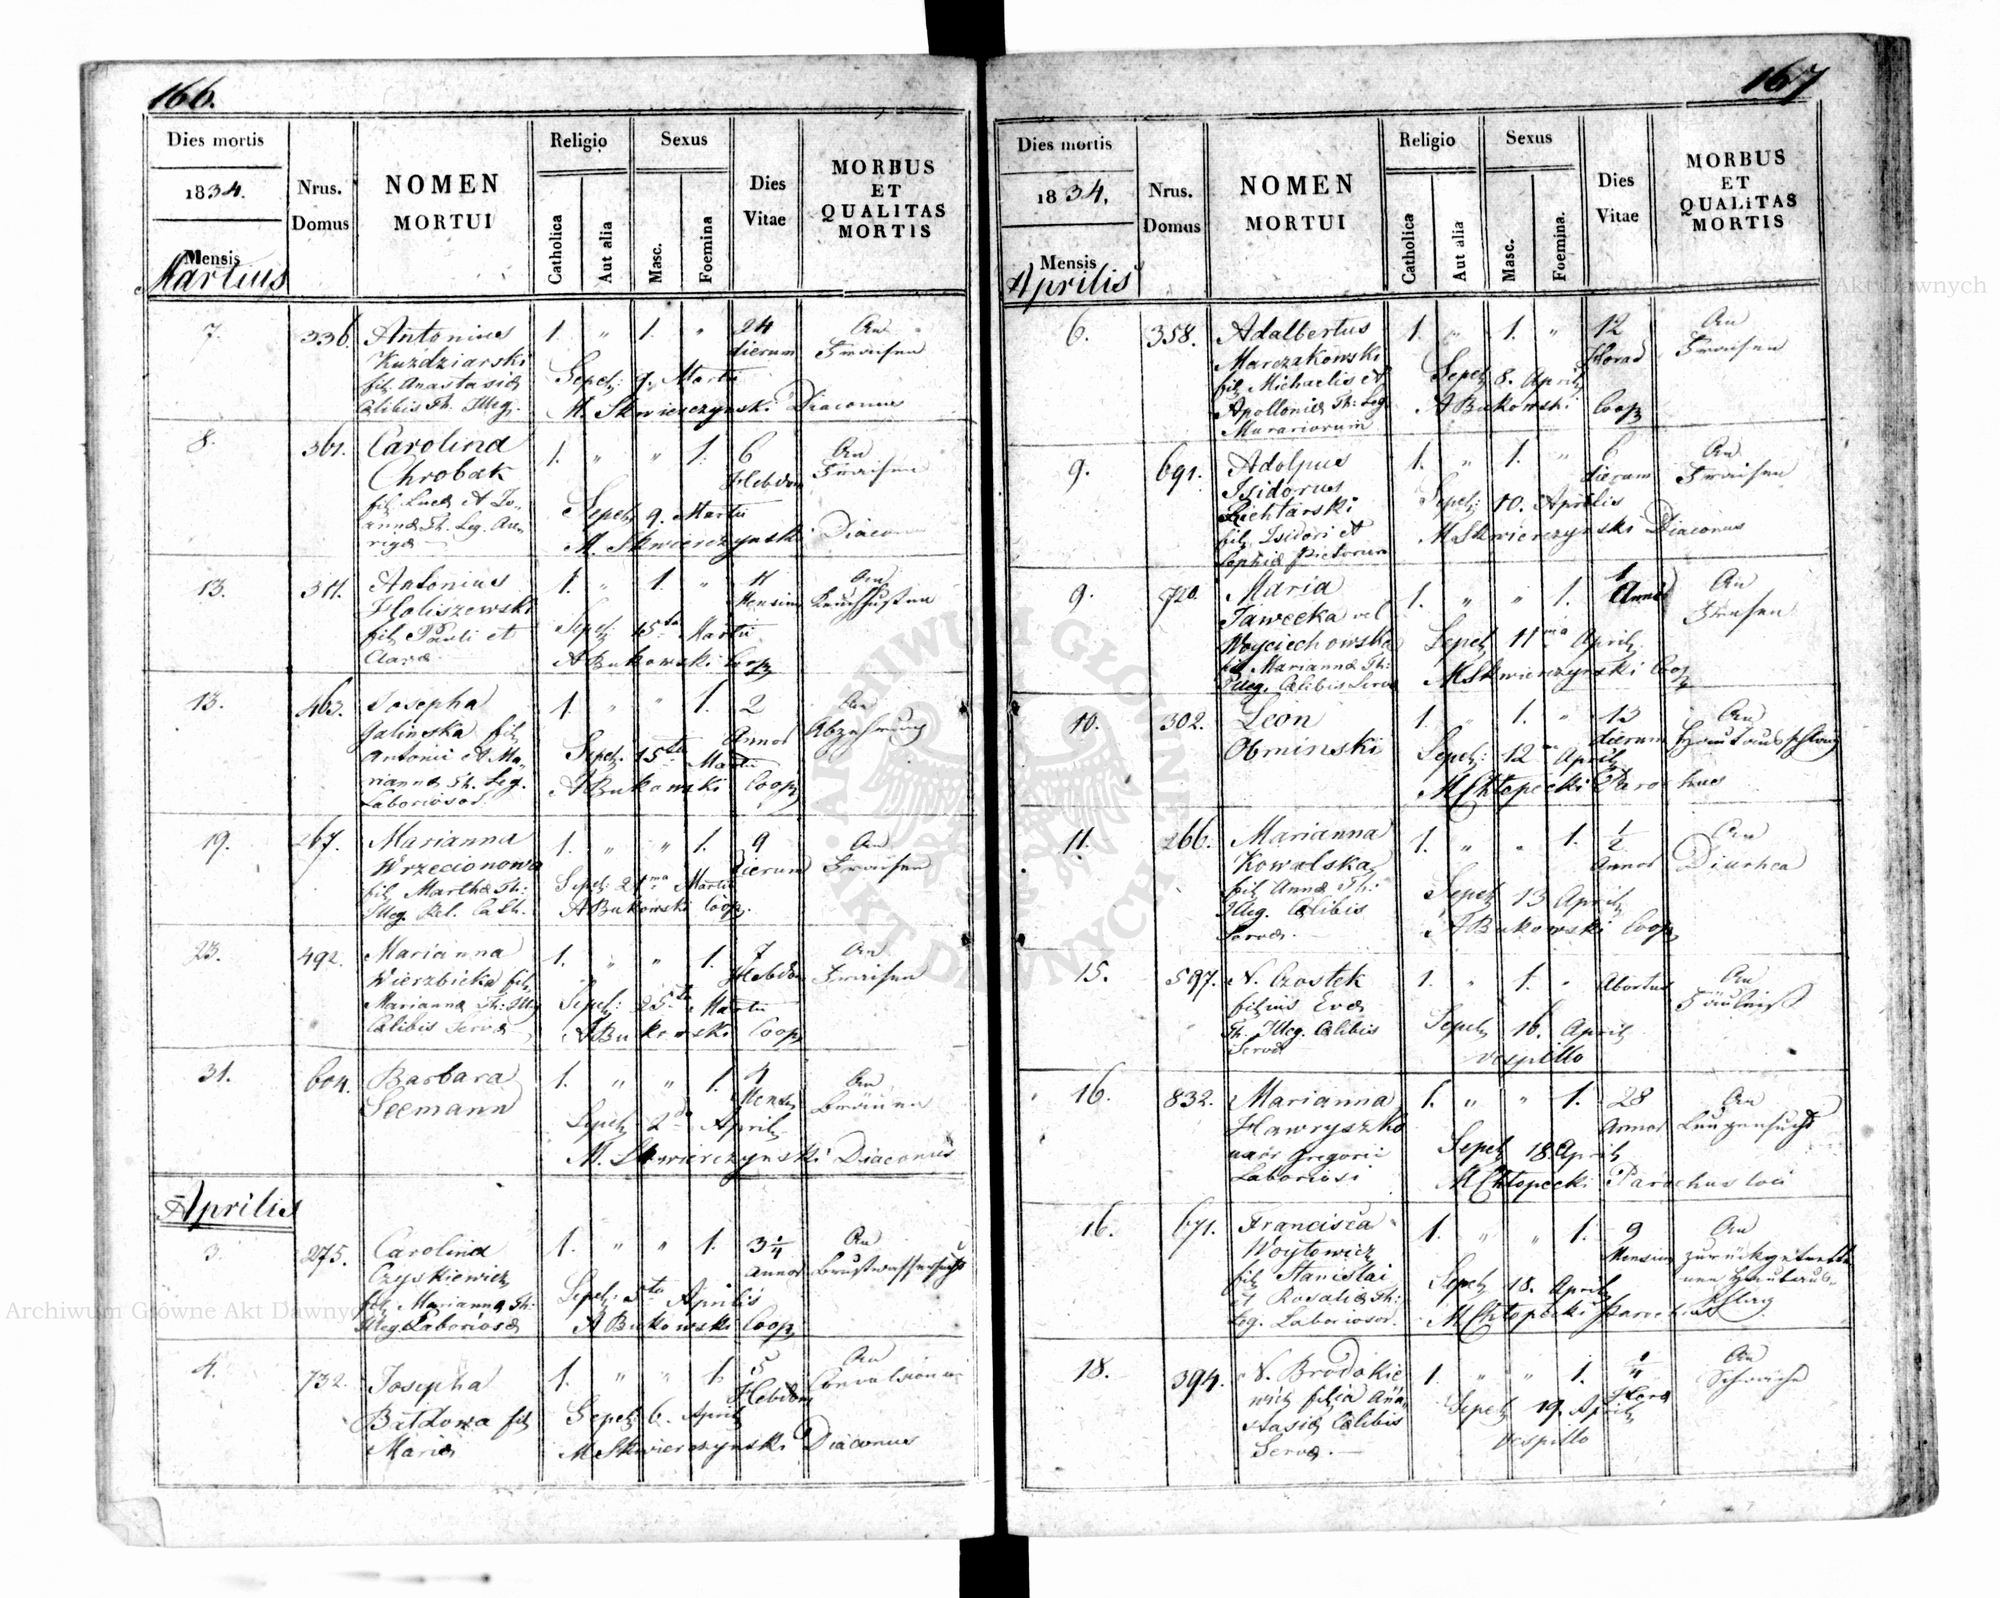 166.
Dies mortis
1834.
Mensis
Martius
Nrus.
Domus
NOMEN
MORTUI
Religio
Catholica
Aut alia
Sexus
Masc.
Foemina
Dies
Vitae
MORBUS
ET
QUALITAS
MORTIS
7. 336. Antonius 1. " 1. " 24 An
Kuździarski dierum Fraisen
fil. Anastasiae Sepel: 9. Martii
Caelibis Th. Illeg. M. Skwierczynski Diaconus
8. 361. Carolina 1. " " 1. 6 An
Chrobak Hebdom Fraisen
fil. Lucae et Jo- Sepel: 9. Martii
annae Th. Leg. Au- M. Skwierczynski Diaconus
rigae
13. 311. Antonius 1. " 1. " 11 An
Holiszewski Mensium Keuchhusten
fil. Pauli et Sepel: 15ta Martii
Clarae A Bukowski Coop.
13. 463. Josepha 1. " " 1. 2 An
Galinska fil. Annor Abzehrung
Antonii et Ma- Sepel: 15ta Martii
riannae Th. Leg. A Bukowski Coop.
Laboriosor.
19. 267. Marianna 1. " " 1. 9 An
Wrzecionowa dierum Fraisen
fil. Marthae Th: Sepel: 21ma Martii
Illeg. Rel. Cath. A Bukowski Coop.
23. 492. Marianna 1. " " 1. 7 An
Wierzbicka fil. Hebdom Fraisen
Mariannae Th: Illeg Sepel: 25ta Martii
Caelibis Servae A Bukowski Coop.
31. 604. Barbara 1. " " 1. 4 An
Seemann Mens. Bräune
Sepel: 2da April.
M. Skwierczynski Diaconus
Aprilis
3. 275. Carolina 1. " " 1. 3 1/4 An
Czyskiewicz Annor Brustwassersucht
fil. Mariannae Th: Sepel: 5ta Aprilis
Illeg. Laboriosae A Bukowski Coop.
4. 732. Josepha 1. " " 1. 5 An
Bałdowa fil. Hebdom Convulsionen
Mariae Sepel: 6. April.
M Skwierczynski Diaconus
167
Dies mortis
1834.
Mensis
Aprilis
Nrus.
Domus
NOMEN
MORTUI
Religio
Catholica
Aut alia
Sexus
Masc.
Foemina.
Dies
Vitae
MORBUS
ET
QUALITAS
MORTIS
6. 358. Adalbertus 1. " 1. " 12 An
Marczakowski Horar Fraisen
fil. Michaelis et Sepel: 8. April
Apolloniae Th: Leg. A Bukowski Coop.
Murariorum
9. 691. Adolpus 1. " 1. " 6 An
Isidorus dierum Fraisen
Richtarski Sepel: 10. Aprilis
fil. Isidori et M Skwierczynski Diaconus
Sophiae Pictorum
9. 720. Maria 1. " " 1. 1 An
Jawecka vel Anni Fraisen
Woyciechowska Sepel: 11ma April.
fil. Mariannae Th: M Skwierczynski Coop.
Illeg. Caelibis Servae
10. 302. Leon 1. " 1. " 13 An
Obminski dierum Hautausschlag
Sepel: 12 April.
M Chłopecki Parochus
11. 266. Marianna 1. " " 1. 1/2 An
Kowalska Annor Diarhea
fil. Annae Th: Sepel: 13 April.
Illeg. Caelibis A Bukowski Coop.
Servae.
15. 597. N. Czostek 1. " 1. " Abortus An
filius Evae Fäulniß
Th. Illeg. Caelibis Sepel: 16. April.
Servae vespillo
16. 832. Marianna 1. " " 1. 28 An
Hawryszko Annor Lungensucht
uxor Gregorii Sepel: 18. April
Laboriosi M Chłopecki Parochus loci
16. 671. Francisca 1. " " 1. 9 An
Woytowicz Mensium zurückgetrette
fil. Stanislai Sepel: 18. April. nen Hautaus-
et Rosaliae Th: M Chłopecki Parochus schlag
Leg. Laboriosor.
18. 394. N. Brodakie 1. " " 1. 1/4 An
wicz filia Ana- Hora Schwäche
stasiae Caelibis Sepel: 19. April.
Servae. vespillo
Archiwum Główne Akt Dawnych
Archiwum Główne Akt Dawnych
ARCHIWUM GŁÓWNE AKT DAWNYCH